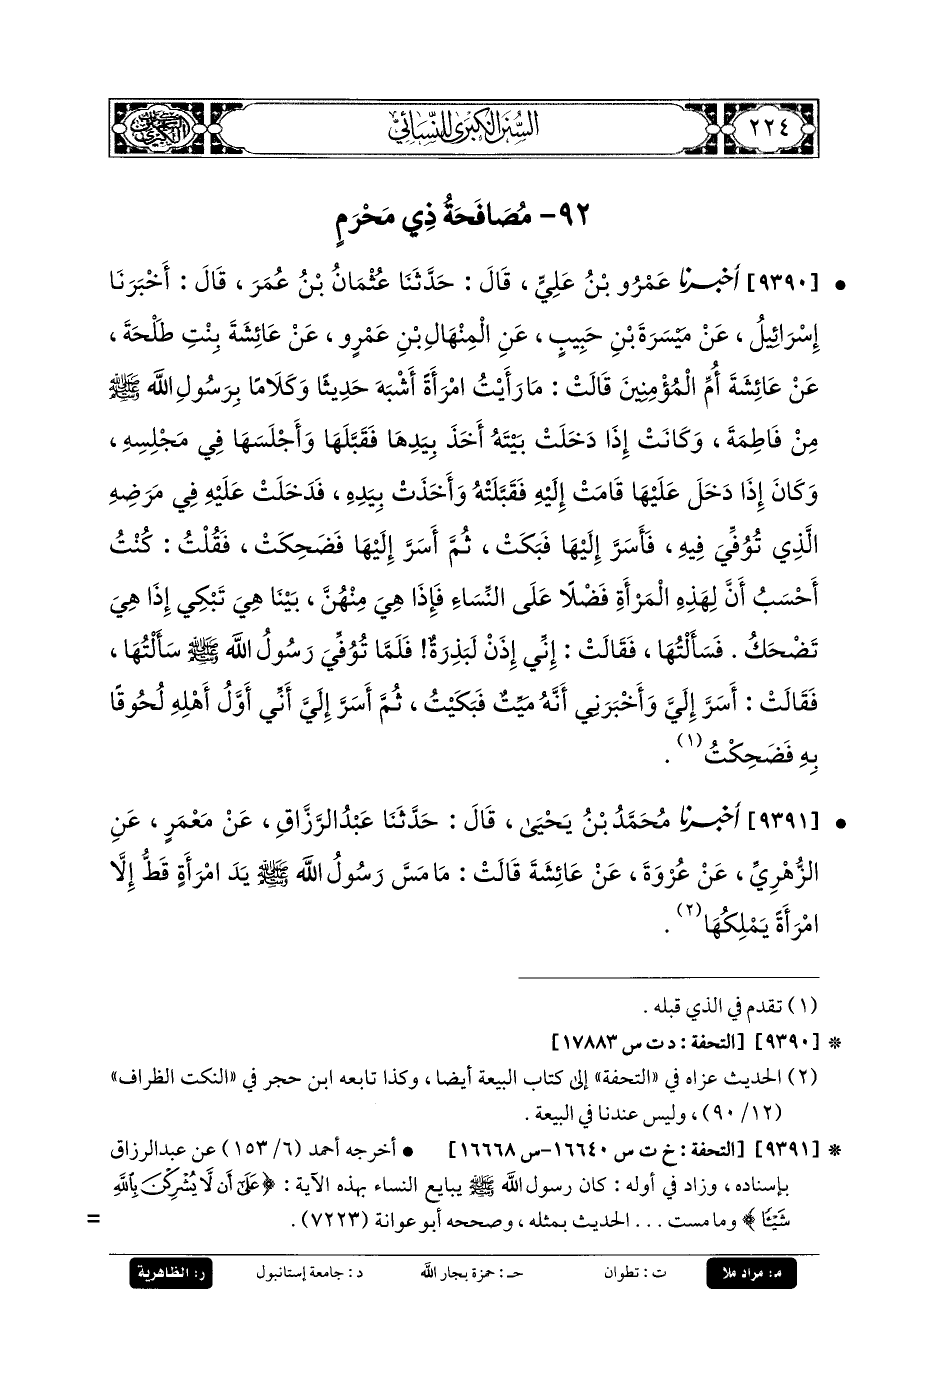 ٢٢٤
السُّنَنُ الكِبْرَىٰ لِلنَّسَائِيِّ
٩٢- مُصَافَحَةُ ذِي مَحْرَمٍ
• [٩٣٩٠] أَخْبَرَنَا عَمْرُو بْنُ عَلِيٍّ ، قَالَ : حَدَّثَنَا عُثْمَانُ بْنُ عُمَرَ ، قَالَ : أَخْبَرَنَا
إِسْرَائِيلُ ، عَنْ مَيْسَرَةَ بْنِ حَبِيبٍ ، عَنِ الْمِنْهَالِ بْنِ عَمْرٍو ، عَنْ عَائِشَةَ بِنْتِ طَلْحَةَ ،
عَنْ عَائِشَةَ أُمِّ الْمُؤْمِنِينَ قَالَتْ : مَا رَأَيْتُ امْرَأَةً أَشْبَهَ حَدِيثًا وَكَلَامًا بِرَسُولِ اللَّه ﷺ
مِنْ فَاطِمَةَ ، وَكَانَتْ إِذَا دَخَلَتْ بَيْتَهُ أَخَذَ بِيَدِهَا فَقَبَّلَهَا وَأَجْلَسَهَا فِي مَجْلِسِهِ ،
وَكَانَ إِذَا دَخَلَ عَلَيْهَا قَامَتْ إِلَيْهِ فَقَبَّلَتْهُ وَأَخَذَتْ بِيَدِهِ ، فَدَخَلَتْ عَلَيْهِ فِي مَرَضِهِ
الَّذِي تُوُفِّيَ فِيهِ ، فَأَسَرَّ إِلَيْهَا فَبَكَتْ ، ثُمَّ أَسَرَّ إِلَيْهَا فَضَحِكَتْ ، فَقُلْتُ : كُنْتُ
أَحْسَبُ أَنَّ لِهَذِهِ الْمَرْأَةِ فَضْلًا عَلَى النِّسَاءِ فَإِذَا هِيَ مِنْهُنَّ ، بَيْنَا هِيَ تَبْكِي إِذَا هِيَ
تَضْحَكُ . فَسَأَلْتُهَا ، فَقَالَتْ : إِنِّي إِذَنْ لَبَذِرَةٌ! فَلَمَّا تُوُفِّيَ رَسُولُ اللَّه ﷺ سَأَلْتُهَا ،
فَقَالَتْ : أَسَرَّ إِلَيَّ وَأَخْبَرَنِي أَنَّهُ مَيِّتٌ فَبَكَيْتُ ، ثُمَّ أَسَرَّ إِلَيَّ أَنِّي أَوَّلُ أَهْلِهِ لُحُوقًا
بِهِ فَضَحِكْتُ (١) .
• [٩٣٩١] أَخْبَرَنَا مُحَمَّدُ بْنُ يَحْيَىٰ ، قَالَ : حَدَّثَنَا عَبْدُالرَّزَّاقِ ، عَنْ مَعْمَرٍ ، عَنِ
الزُّهْرِيِّ ، عَنْ عُرْوَةَ ، عَنْ عَائِشَةَ قَالَتْ : مَا مَسَّ رَسُولُ اللَّه ﷺ يَدَ امْرَأَةٍ قَطُّ إِلَّا
امْرَأَةً يَمْلِكُهَا (٢) .
(١) تقدم في الذي قبله .
* [٩٣٩٠] [التحفة : د ت س ١٧٨٨٣]
(٢) الحديث عزاه في «التحفة» إلى كتاب البيعة أيضا ، وكذا تابعه ابن حجر في «النكت الظراف»
(١٢/ ٩٠) ، وليس عندنا في البيعة .
* [٩٣٩١] [التحفة : خ ت س ١٦٦٤٠-س ١٦٦٦٨] • أخرجه أحمد (٦/ ١٥٣) عن عبدالرزاق
بإسناده ، وزاد في أوله : كان رسول الله ﷺ يبايع النساء بهذه الآية : ﴿عَلَىٰٓ أَن لَّا يُشْرِكْنَ بِٱللَّهِ
شَيْـًٔا﴾ وما مست ... الحديث بمثله ، وصححه أبو عوانة (٧٢٢٣) . =
م: مراد ملا ت : تطوان حـ : حمزة بجار الله د : جامعة إستانبول ر: الظاهرية